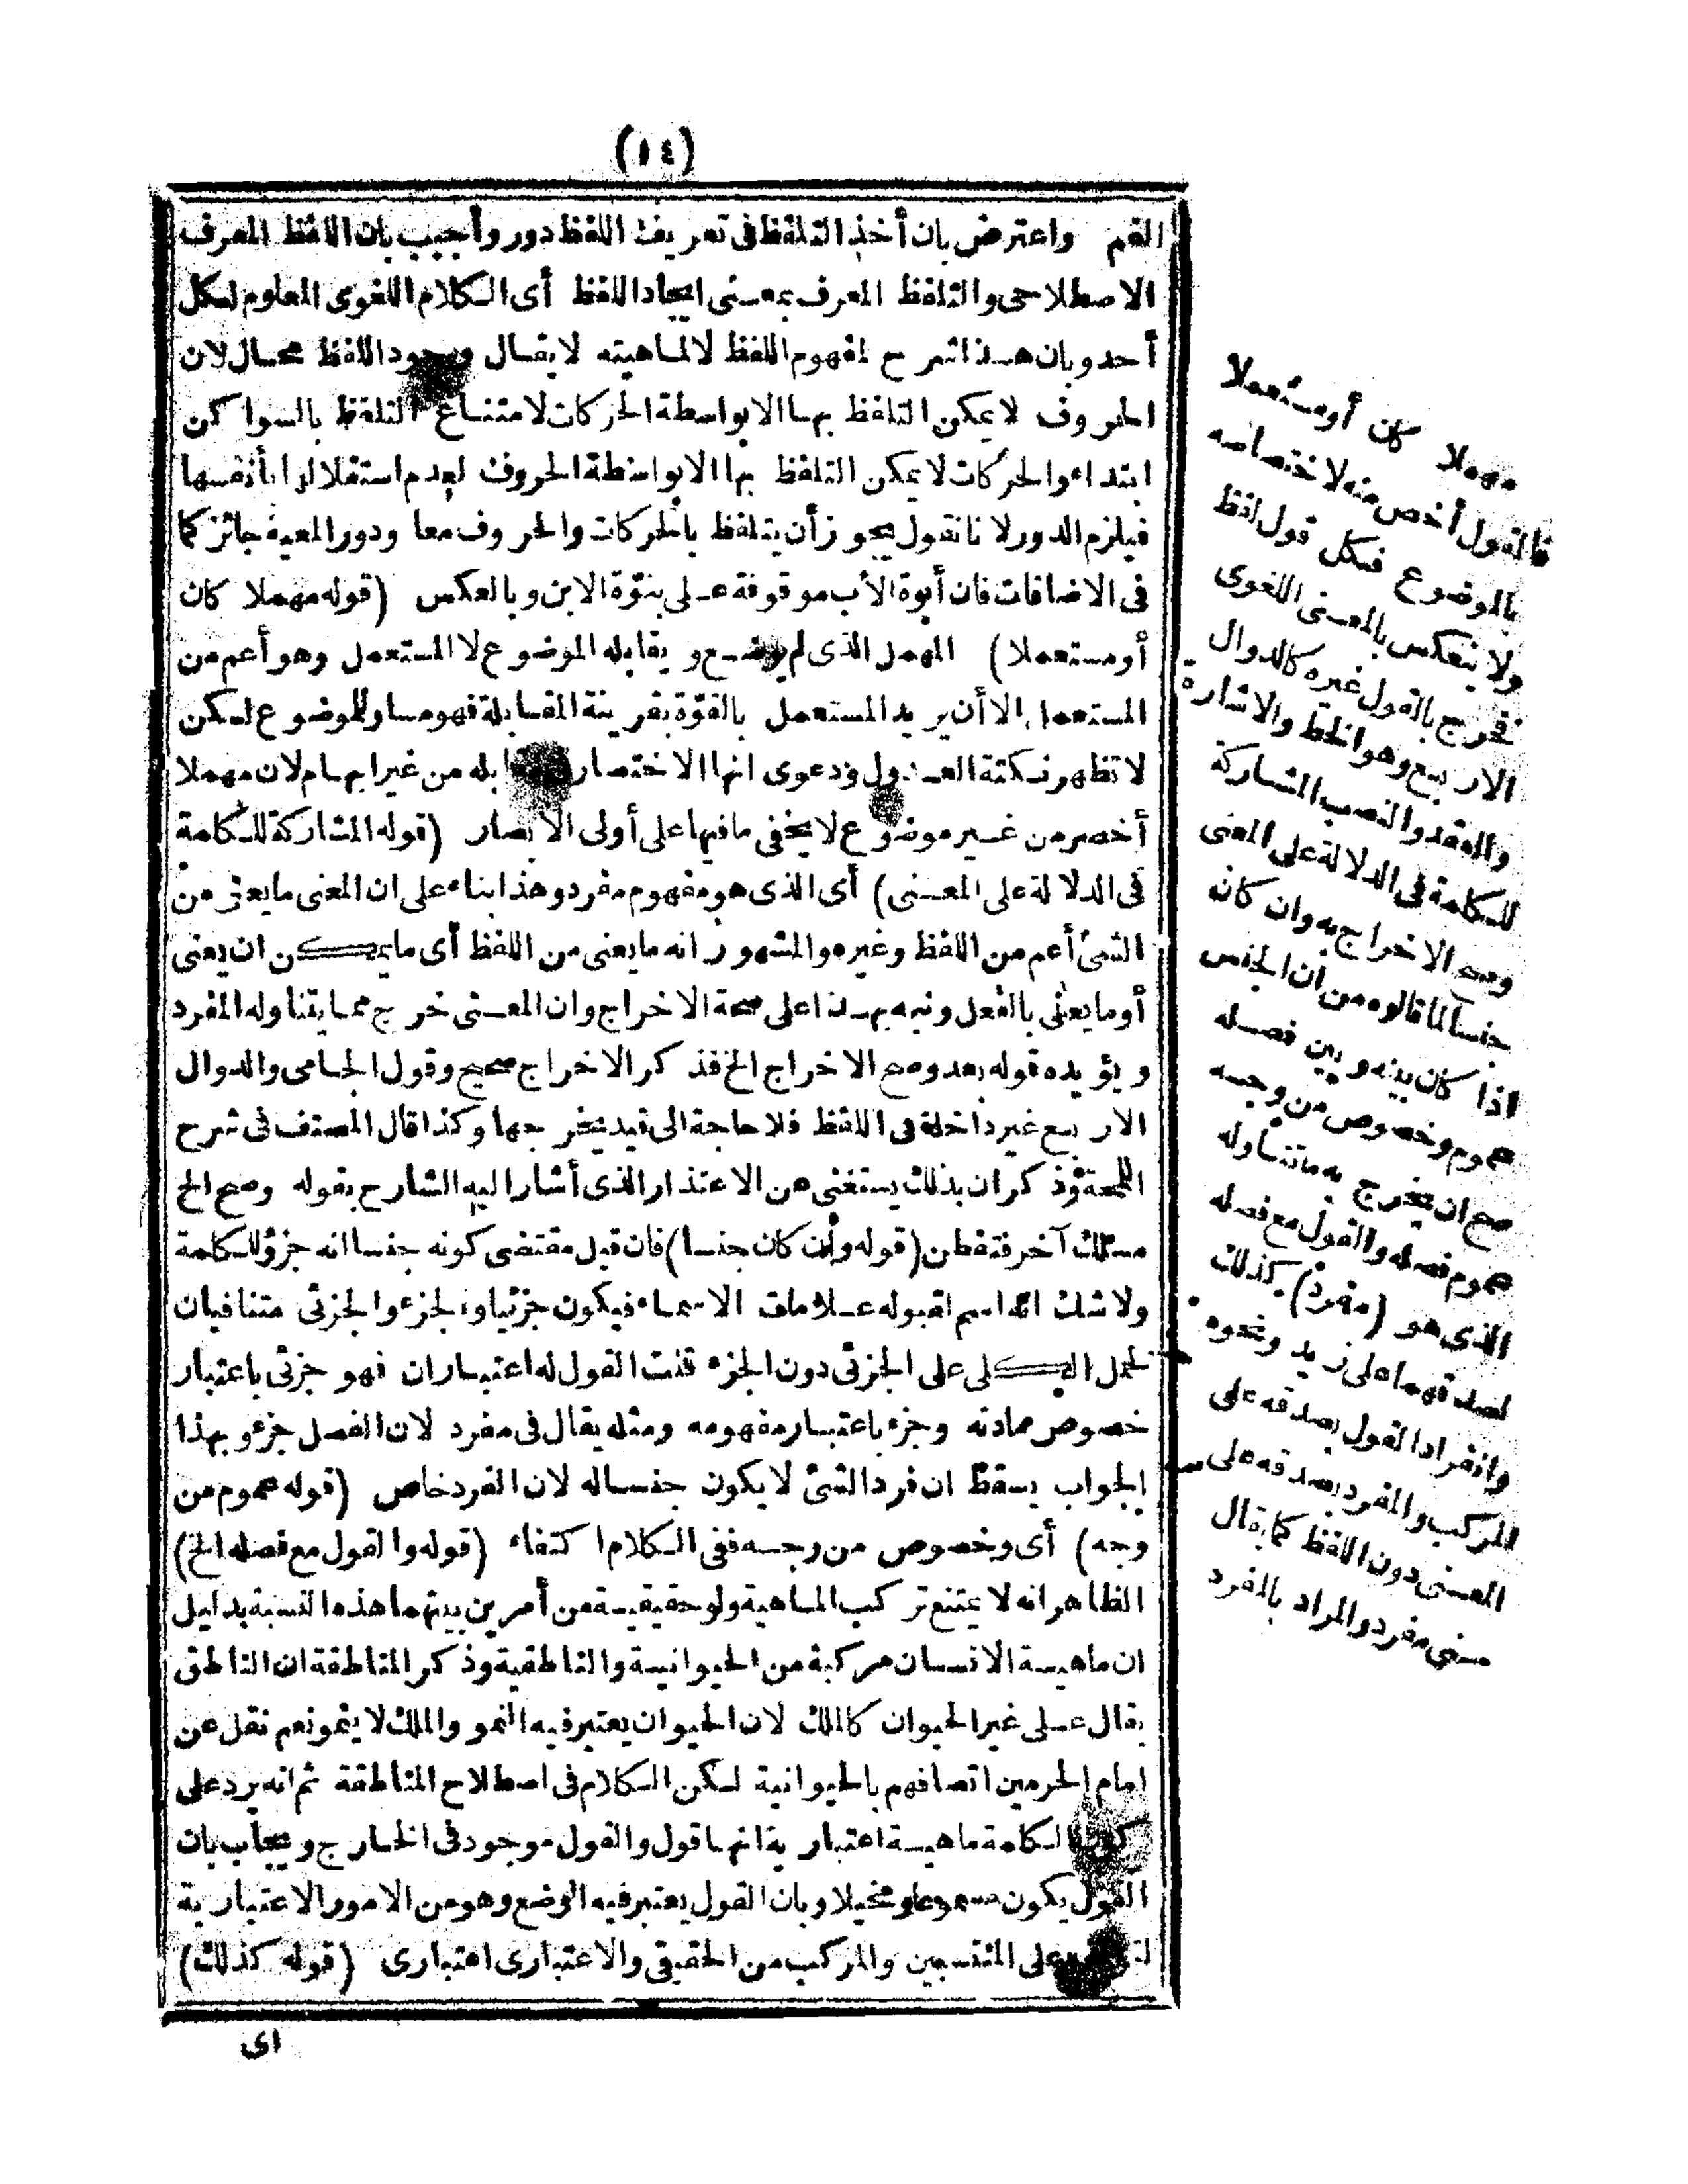 (١٤)
الفم واعترض بان أخذ التلفظ فى تعريف اللفظ دور وأجيب بان اللفظ المعرف
الاصطلاحى والتلفظ المعرف بمعنى ايجاد اللفظ أى الكلام اللغوى المعلوم لكل
أحد وبان هذا شرح لمفهوم اللفظ لا لماهيته لا يقال وجود اللفظ محال لان
الحروف لا يمكن التلفظ بها الا بواسطة الحركات لامتناع التلفظ بالسواكن
ابتداء والحركات لا يمكن التلفظ بها الا بواسطة الحروف لعدم استقلالها بأنفسها
فيلزم الدور لانا نقول يجوز أن يتلفظ بالحركات والحروف معا ودور المعية جائز كما
فى الاضافات فان أبوة الأب موقوفة على بنوّة الابن وبالعكس (قوله مهملا كان
أو مستعملا) المهمل الذى لم يوضع ويقابله الموضوع لا المستعمل وهو أعم من
المستعمل الا أن يريد المستعمل بالقوّة بقرينة المقابلة فهو مساو للموضوع لكن
لا تظهر نكتة العدول ودعوى انها الاختصار بله من غير ابهام لان مهملا
أخصر من غير موضوع لا يخفى ما فيها على أولى الابصار (قوله المشاركة للكلمة
فى الدلالة على المعنى) أى الذى هو مفهوم مفرد وهذا بناء على ان المعنى ما يعنى من
الشئ أعم من اللفظ وغيره والمشهور انه ما يعنى من اللفظ أى ما يمكن ان يعنى
أو ما يعنى بالفعل ونبه بهذا على صحة الاخراج وان المعنى خرج مما يتناوله المفرد
ويؤيده قوله بعد وصح الاخراج الخ فذكر الاخراج صحيح وقول الجامى والدوال
الاربع غير داخلة فى اللفظ فلا حاجة الى قيد يخرجها وكذا قال المصنف فى شرح
اللمحة وذكر ان بذلك يستغنى عن الاعتذار الذى أشار اليه الشارح بقوله وصح الخ
مسلك آخر فتفطن (قوله وان كان جنسا) فان قيل مقتضى كونه جنسا انه جزؤ للكلمة
ولا شك انه اسم لقبوله علامات الاسماء فيكون جزئيا والجزء والجزئى متنافيان
لحمل الكلى على الجزئى دون الجزء قلت القول له اعتباران فهو جزئى باعتبار
خصوص مادته وجزء باعتبار مفهومه ومثله يقال فى مفرد لان الفصل جزء وبهذا
الجواب يسقط ان فرد الشئ لا يكون جنسا له لان الفرد خاص (قوله عموم من
وجه) أى وخصوص من وجه ففى الكلام اكتفاء (قوله والقول مع فصله الخ)
الظاهر انه لا يمتنع تركب الماهية ولو حقيقية من أمرين بينهما هذه النسبة بدليل
ان ماهية الانسان مركبة من الحيوانية والناطقية وذكر المناطقة ان الناطق
يقال على غير الحيوان كالملك لان الحيوان يعتبر فيه النمو والملك لا ينمو نعم نقل عن
امام الحرمين اتصافهم بالحيوانية لكن الكلام فى اصطلاح المناطقة ثم انه يرد على
كون الكلمة ماهية اعتبارية انها قول والقول موجود فى الخارج ويجاب بان
القول يكون مسموعا ومتخيلا وبان القول يعتبر فيه الوضع وهو من الامور الاعتبارية
على المنتسبين والمركب من الحقيقى والاعتبارى اعتبارى (قوله كذلك)
اى
مهملا كان أو مستعملا
فالقول أخص منه لاختصاصه
بالموضوع فكل قول لفظ
ولا ينعكس بالمعنى اللغوى
فخرج بالقول غيره كالدوال
الاربع وهو الخط والاشارة
والعقد والنصب المشاركة
للكلمة فى الدلالة على المعنى
وصح الاخراج به وان كان
جنسا لما قالوه من ان الجنس
اذا كان بينه وبين فصله
عموم وخصوص من وجه
صح ان يخرج به ما تناوله
عموم فصله والقول مع فصله
الذى هو (مفرد) كذلك
لصدقهما على زيد ونحوه
وانفراد القول بصدقه على
المركب والمفرد بصدقه على
المعنى دون اللفظ كما يقال
معنى مفرد والمراد بالمفرد